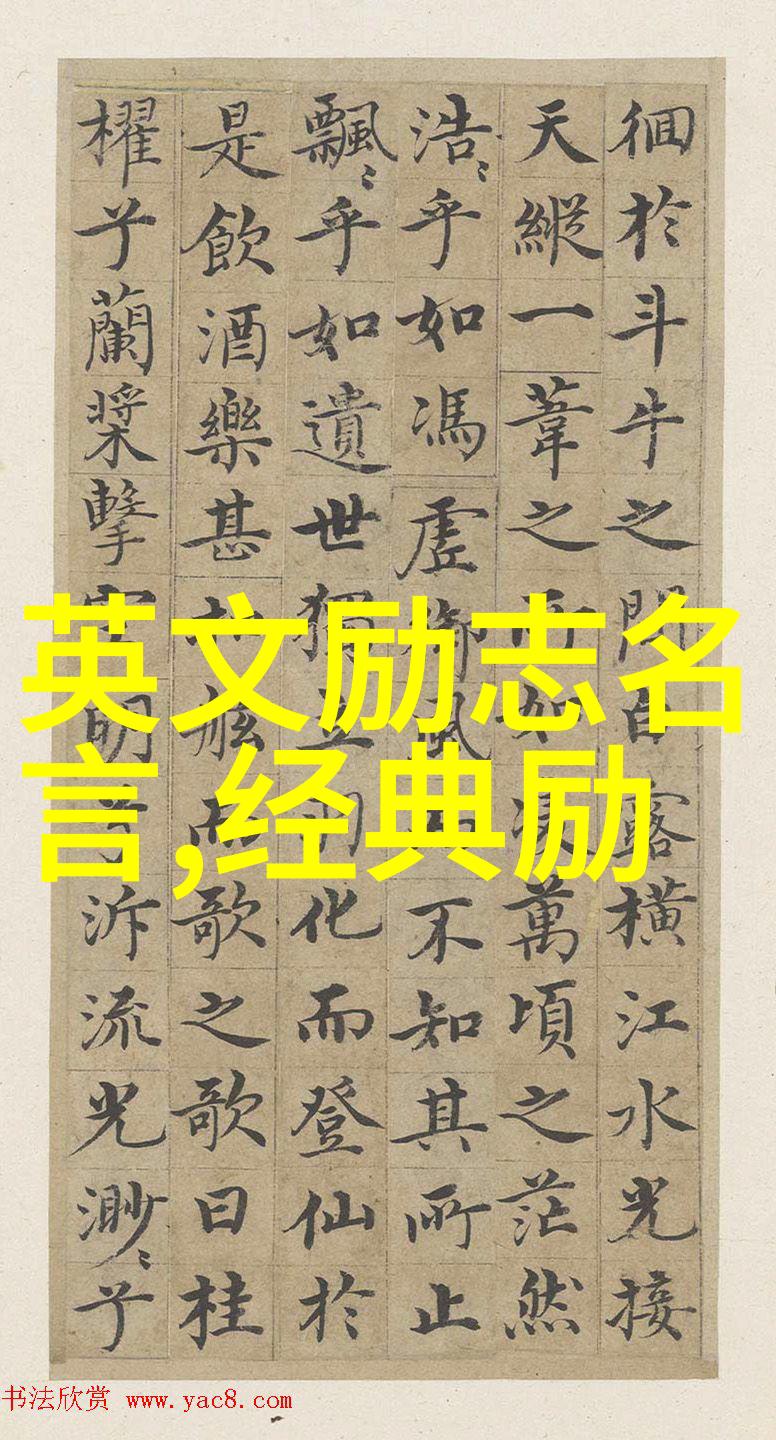 徊於斗牛之間白露橫江水光接
天縱一葦之所如凌萬頃之茫然
浩〻乎如馮虛御風而不知其所止
飄〻乎如遺世獨立羽化而登仙於
是飲酒樂甚扣舷而歌之歌曰桂
櫂兮蘭槳擊空明兮泝流光渺〻兮
英文励志名
言,经典励
书法欣赏 www.yac8.com